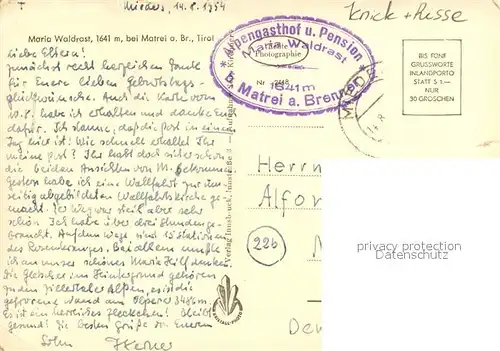 Mieders, 14.8.1954
Knick + Risse
Maria Waldrast, 1641 m, bei Matrei a. Br., Tirol
* Alpengasthof u. Pension *
Maria Waldrast
1641m
b. Matrei a. Brenner
Photographie
Nr.
BIS FÜNF
GRUSSWORTE
INLANDPORTO
STATT S 1.—
NUR
30 GROSCHEN
Liebe Eltern!
Zunächst recht herzlichen Dank
für Eure lieben Geburtstags-
glückwünsche. Auch die Karte vom
10.8. habe ich erhalten und danke Euch
dafür. Ich staune, daß die Post in einem
Tag hier ist! Wie schnell erhaltet Ihr
meine Post? Ihr habt doch sicher schon
die beiden Ansichten von
Gestern habe ich eine Wallfahrt zur um-
seitig abgebildeten Wallfahrtskirche ge-
macht. Der Weg war steil aber sehr
schön. Ich habe über drei Stunden ge-
braucht. Auf dem Wege sind 15 Stationen
des Rosenkranzes. Bei allem mußte
ich an unser schönes Maria Hilf denken.
Die Gletscher im Hintergrund gehören
zu den Zillertaler Alpen, es ist die
gefrorene Wand am Olperer 3486 m.
Es ist ein herrliches Fleckchen! Bleibt
gesund! Die besten Grüße von Eurem
Sohn Werner
Verlag Innsbruck, Innstraße
Herrn
Alfon
(22b)
Deu
privacy protection
Datenschutz